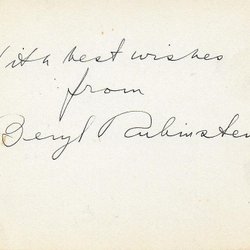 With best wishes
from
Beryl Rubinstein